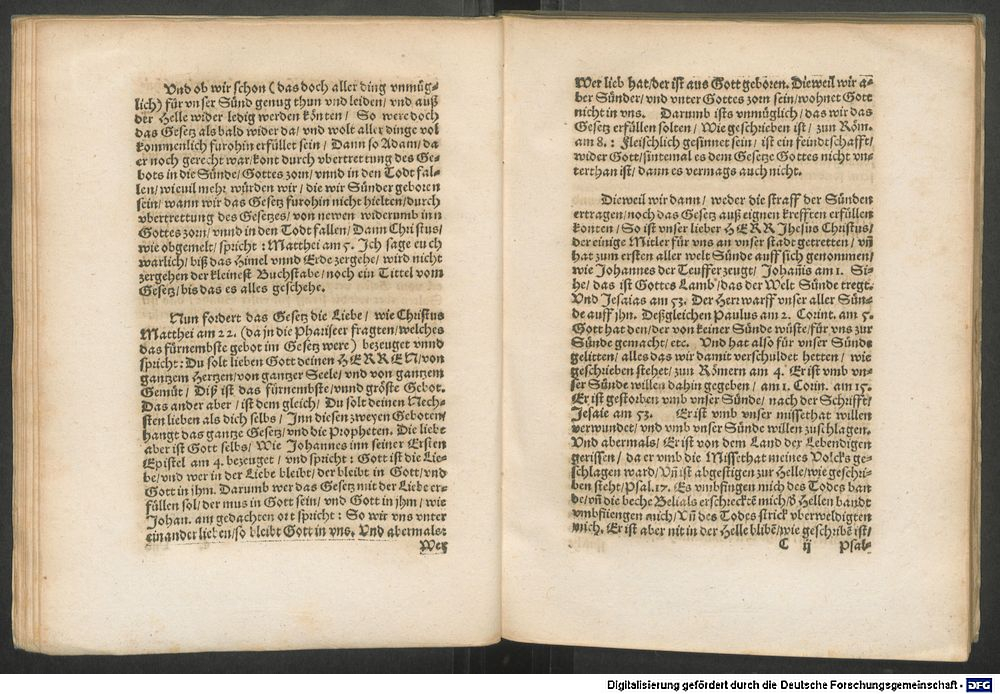 Vnd ob wir schon (das doch aller ding vnmüg-
lich) für vnser Sünd genug thun vnd leiden/ vnd auß
der Helle wider ledig werden könten/ So were doch
das Gesetz als bald wider da/ vnd wolt aller dinge vol
kommenlich furohin erfüllet sein/ Dann so Adam/ da
er noch gerecht war/ kont durch vbertrettung des Ge-
bots in die Sünde/ Gottes zorn/ vnnd in den Todt fal-
len/ wieuil mehr würden wir/ die wir Sünder geboren
sein/ wann wir das Gesetz furohin nicht hielten/ durch
vbertrettung des Gesetzes/ von newen widerumb inn
Gottes zorn/ vnnd in den Todt fallen/ Dann Christus/
wie obgemelt/ spricht: Matthei am 5. Ich sage euch
warlich/ biß das Himel vnnd Erde zergehe/ wird nicht
zergehen der kleinest Buchstabe/ noch ein Tittel vom
Gesetz/ bis das es alles geschehe.
Nun fordert das Gesetz die Liebe/ wie Christus
Matthei am 22. (da in die Phariseer fragten/ welches
das fürnembste gebot im Gesetz were) bezeuget vnnd
spricht: Du solt lieben Gott deinen HERREN/ von
gantzem Hertzen/ von gantzer Seele/ vnd von gantzem
Gemüt/ Diß ist das fürnembste/ vnnd gröste Gebot.
Das ander aber/ ist dem gleich/ Du solt deinen Nech-
sten lieben als dich selbs/ Inn diesen zweyen Geboten/
hangt das gantze Gesetz/ vnd die Propheten. Die liebe
aber ist Gott selbs/ Wie Johannes inn seiner Ersten
Epistel am 4. bezeuget/ vnd spricht: Gott ist die Lie-
be/ vnd wer in der Liebe bleibt/ der bleibt in Gott/ vnd
Gott in jhm. Darumb wer das Gesetz mit der Liebe er-
füllen sol/ der mus in Gott sein/ vnd Gott in jhm/ wie
Johan. am gedachten ort spricht: So wir vns vnter
einander lieben/ so bleibt Gott in vns. Vnd abermals:
Wer
Wer lieb hat/ der ist aus Gott geboren. Dieweil wir a-
ber Sünder/ vnd vnter Gottes zorn sein/ wohnet Gott
nicht in vns. Darumb ists vnmüglich/ das wir das
Gesetz erfüllen solten/ Wie geschrieben ist/ zun Röm.
am 8.: Fleischlich gesinnet sein/ ist ein feindtschafft/
wider Gott/ sintemal es dem Gesetze Gottes nicht vn-
terthan ist/ dann es vermags auch nicht.
Dieweil wir dann/ weder die straff der Sünden
ertragen/ noch das Gesetz auß eignen krefften erfüllen
konten/ So ist vnser lieber HERR Jhesus Christus/
der einige Mitler für vns an vnser stadt getretten/ vn̄
hat zum ersten aller welt Sünde auff sich genommen/
wie Johannes der Teuffer zeugt/ Johan̄is am 1. Si-
he/ das ist Gottes Lamb/ das der Welt Sünde tregt.
Vnd Jesaias am 53. Der Herr warff vnser aller Sün-
de auff jhn. Deßgleichen Paulus am 2. Corint. am 5.
Gott hat den/ der von keiner Sünde wüste/ für vns zur
Sünde gemacht/ etc. Vnd hat also für vnser Sünde
gelitten/ alles das wir damit verschuldet hetten/ wie
geschrieben stehet/ zun Römern am 4. Er ist vmb vn-
ser Sünde willen dahin gegeben/ am 1. Corin. am 15.
Er ist gestorben vmb vnser Sünde/ nach der Schrifft/
Jesaie am 53. Er ist vmb vnser missethat willen
verwundet/ vnd vmb vnser Sünde willen zuschlagen.
Vnd abermals/ Er ist von dem Land der Lebendigen
gerissen/ da er vmb die Missethat meines Volcks ge-
schlagen ward/ Vn̄ ist abgestigen zur Helle/ wie geschri-
ben steht/ Psal. 17. Es vmbfingen mich des Todes ban
de/ vn̄ die beche Belials erschrecktē mich/ d' Hellen bandt
vmbfiengen mich/ Vn̄ des Todes strick vberweldigten
mich. Er ist aber nit in der Helle blibē/ wie geschribē ist/
C ij Psal-
Digitalisierung gefördert durch die Deutsche Forschungsgemeinschaft - DFG